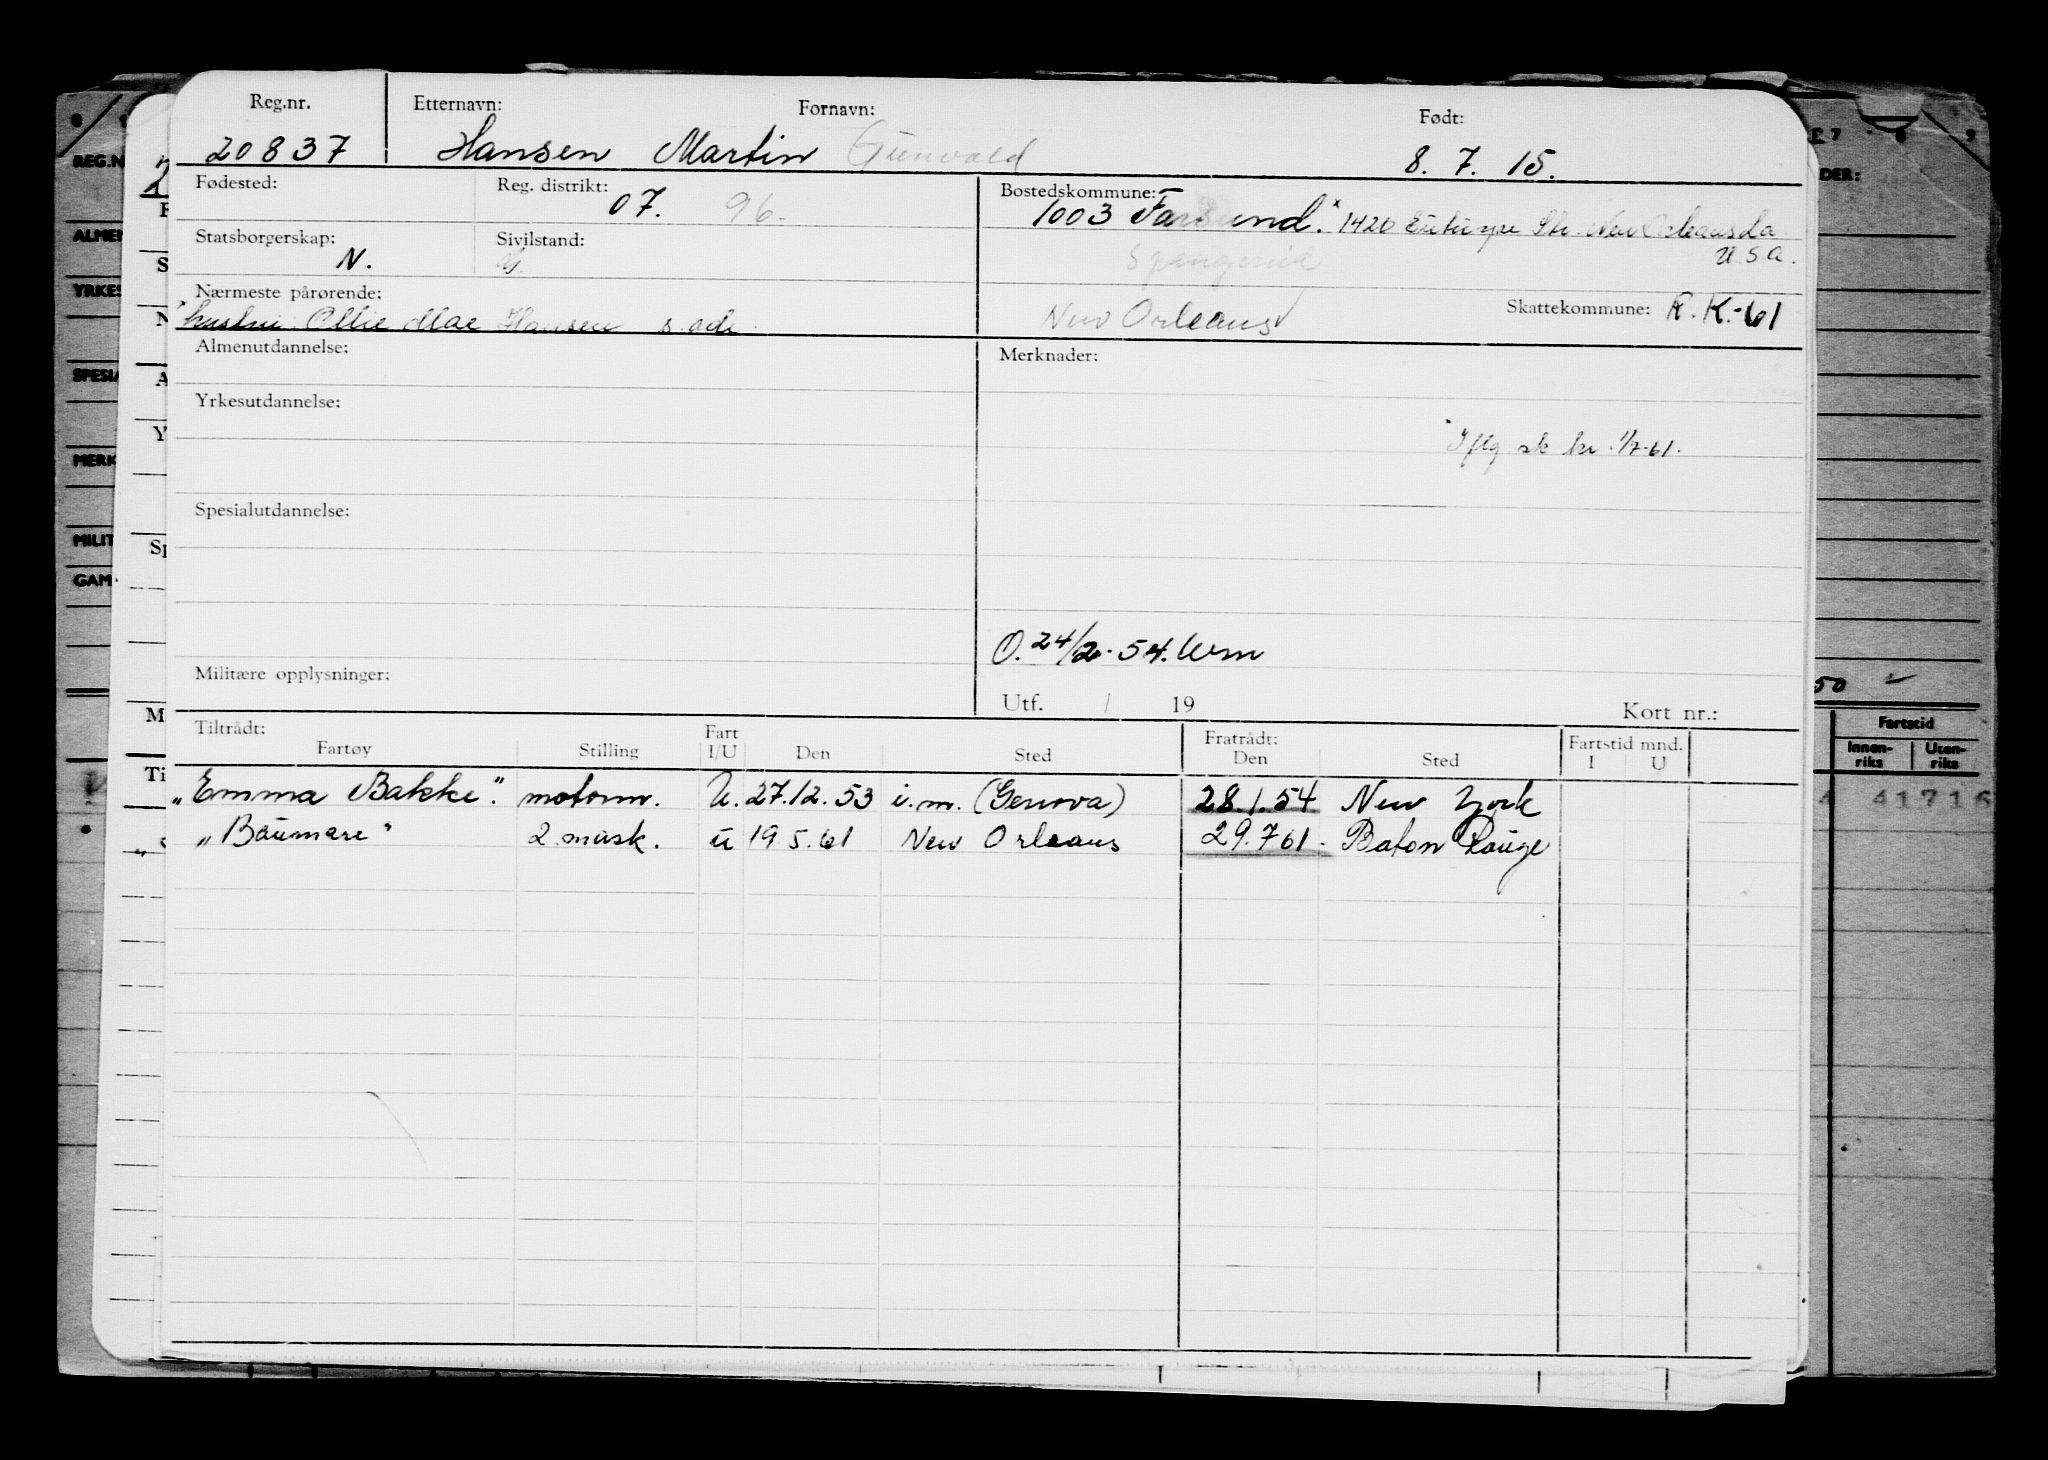 Reg.nr. Etternavn: Fornavn: Født:
20837 Hansen Martin Gunvald 8. 7. 15.
Fødested: Reg. distrikt: 07. 96. Bostedskommune: 1003 Farsund. * 1420 Euterpe Str. New Orleans La
U.S.A.
Statsborgerskap: N. Sivilstand: Spangereid
Nærmeste pårørende: New Orleans Skattekommune: R.K.-61
* hustru: Ollie Mae Hansen s. adr.
Almenutdannelse: Merknader:
Yrkesutdannelse:
* Iflg sk kr. 1/7-61.
Spesialutdannelse:
O. 24/2-54.
Militære opplysninger:
Utf. / 19 Kort nr.:
Tiltrådt: Fart Fratrådt: Fartstid mnd.
Fartøy Stilling I/U Den Sted Den Sted I U
"Emma Bakke". motorm. U. 27.12.53 i.m. (Genova) 28.1.54 New York
"Baumare" 2 mask. u 19 5.61 New Orleans 29.7 61. Baton Rouge
REG.N
ALMEN
YRKES
SPESIA
MERK
MILIT
GAM
DER:
50
Fartstid
Innen-riks Uten-riks
4 41716